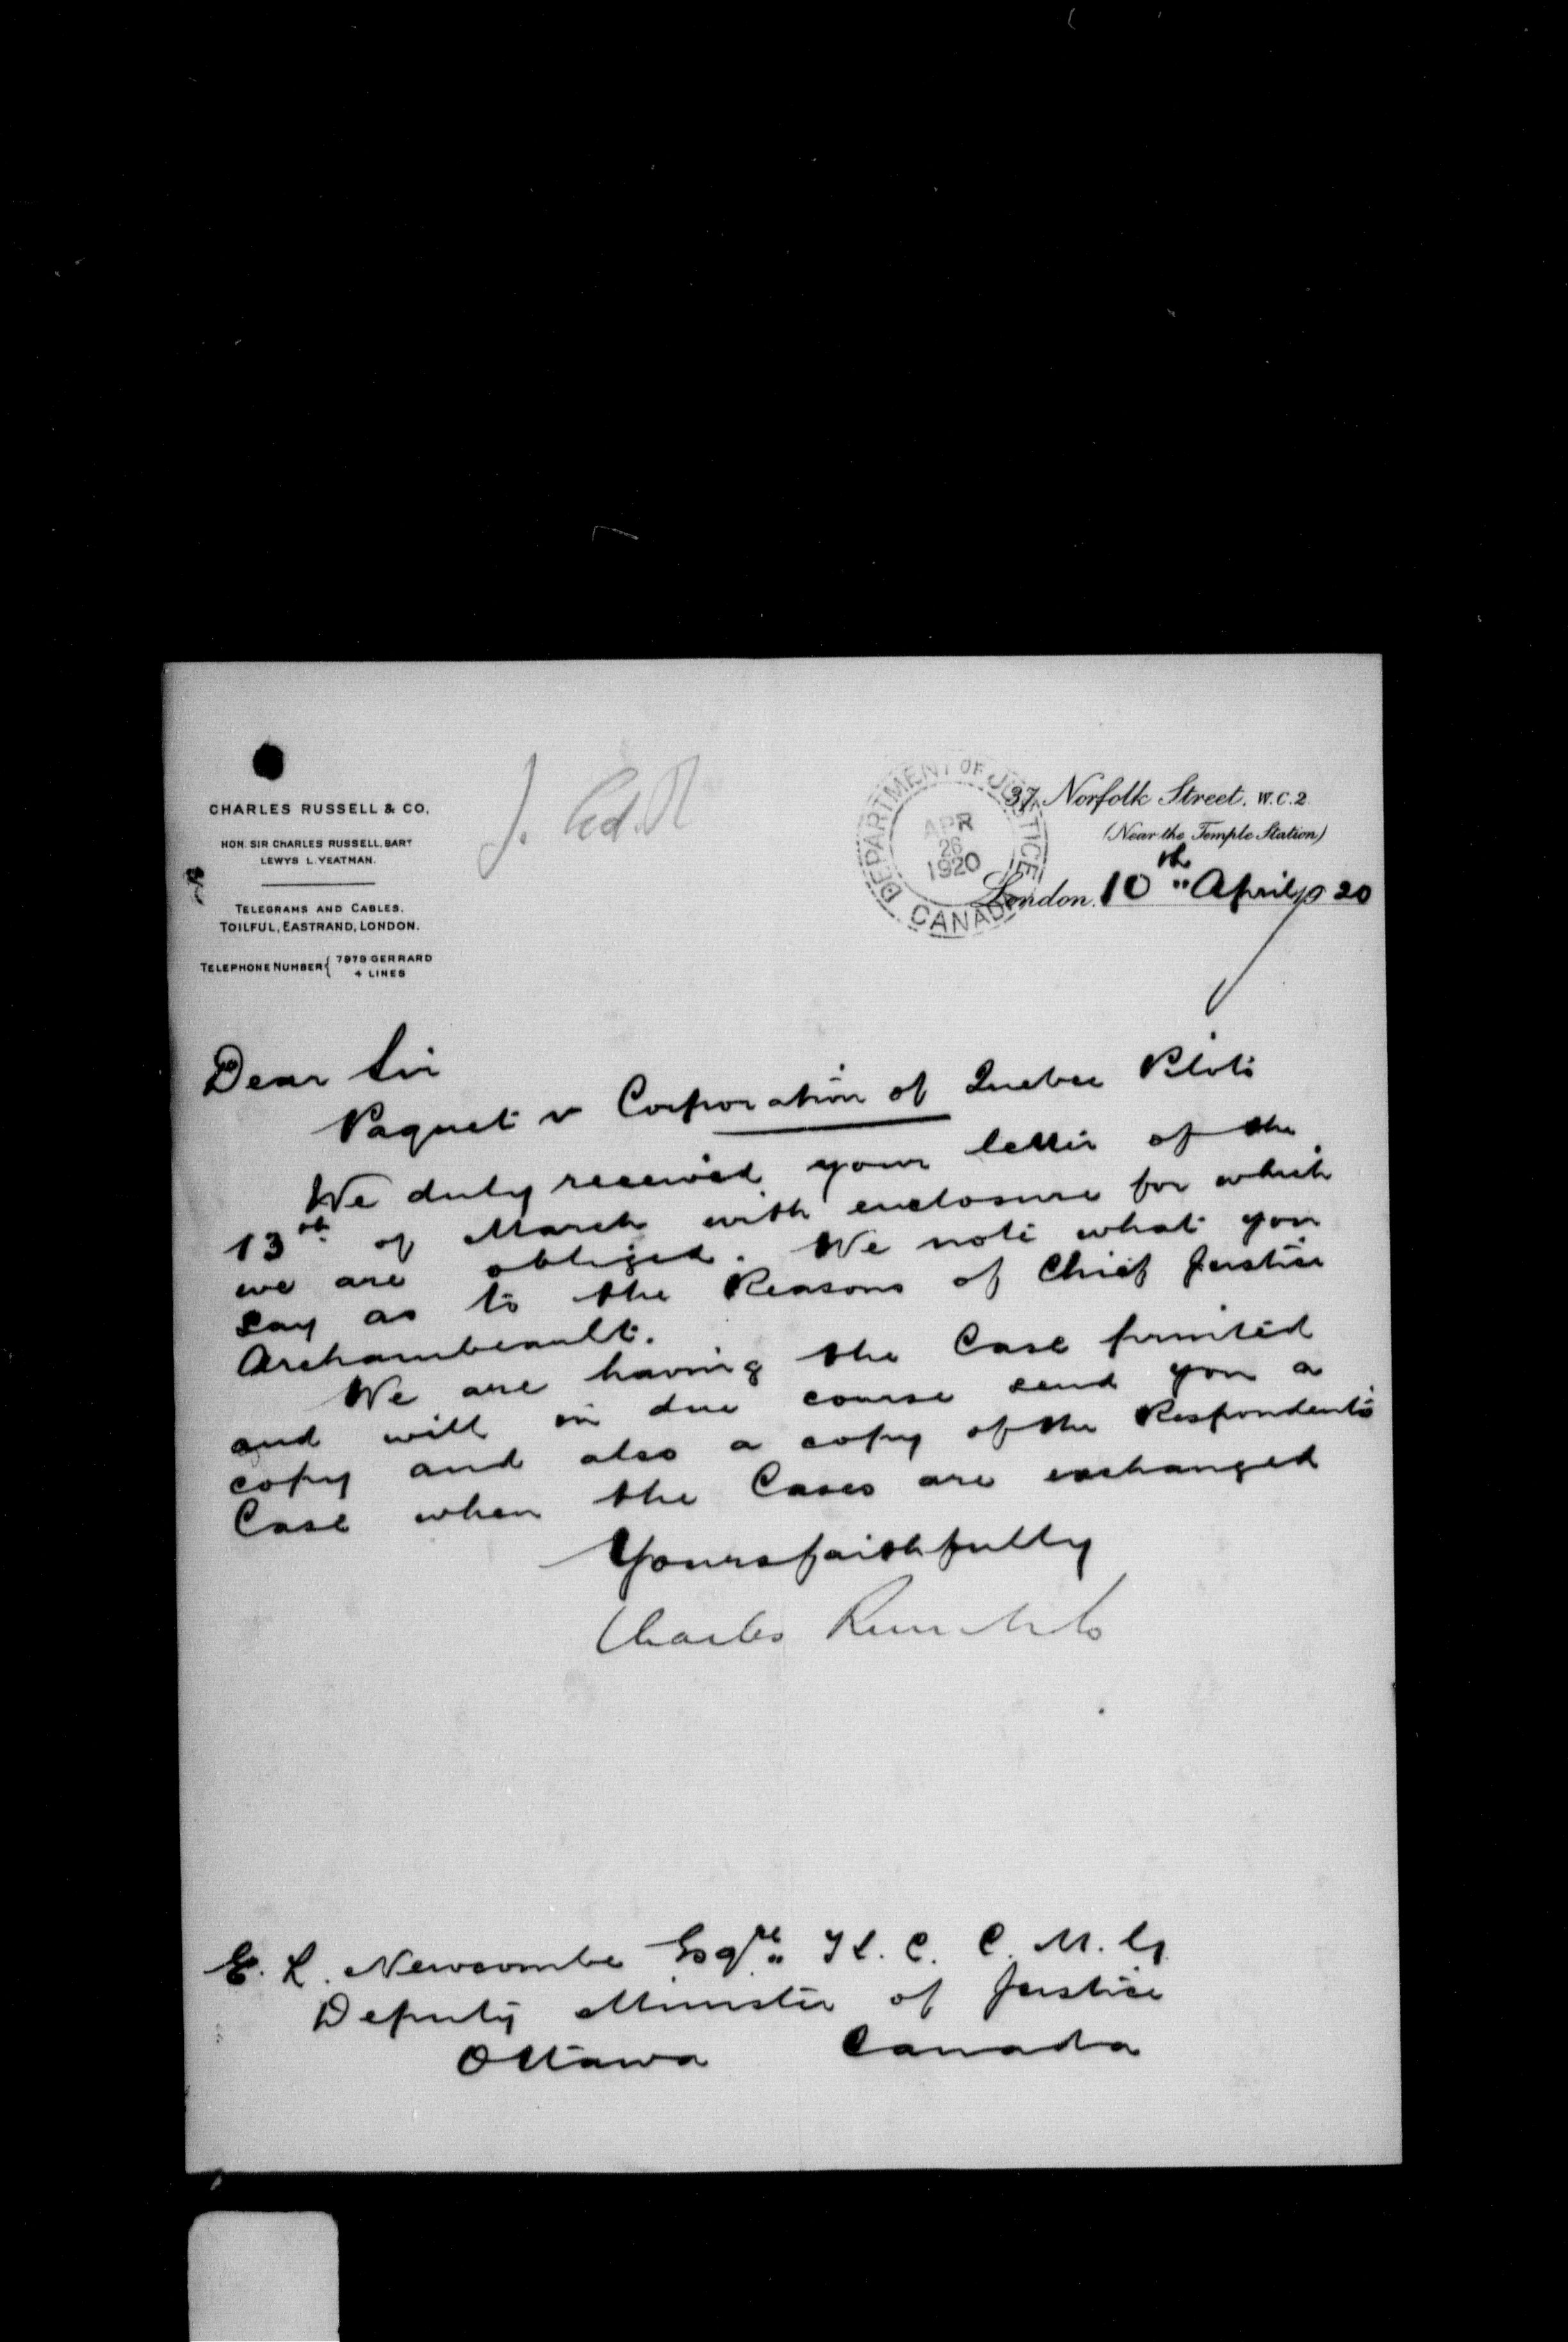 CHARLES RUSSELL & CO.
HON. SIR CHARLES RUSSELL, BART
LEWYS L. YEATMAN.
TELEGRAMS AND CABLES.
TOILFUL, EASTRAND, LONDON.
TELEPHONE NUMBER { 7979 GERRARD
4 LINES
DEPARTMENT OF JUSTICE
APR
26
1920
CANADA
37, Norfolk Street, W.C.2.
(Near the Temple Station)
London, 10th April 1920
Dear Sir
Paquet v Corporation of Quebec Pilots
We duly received your letter of the
13th of March with enclosure for which
we are obliged. We note what you
say as to the Reasons of Chief Justice
Archambeault.
We are having the Case printed
and will in due course send you a
copy and also a copy of the Respondents
Case when the Cases are exchanged
Yours faithfully
Charles Russell & Co
E. L. Newcombe Esqre K. C. C. M. G.
Deputy Minister of Justice
Ottawa Canada